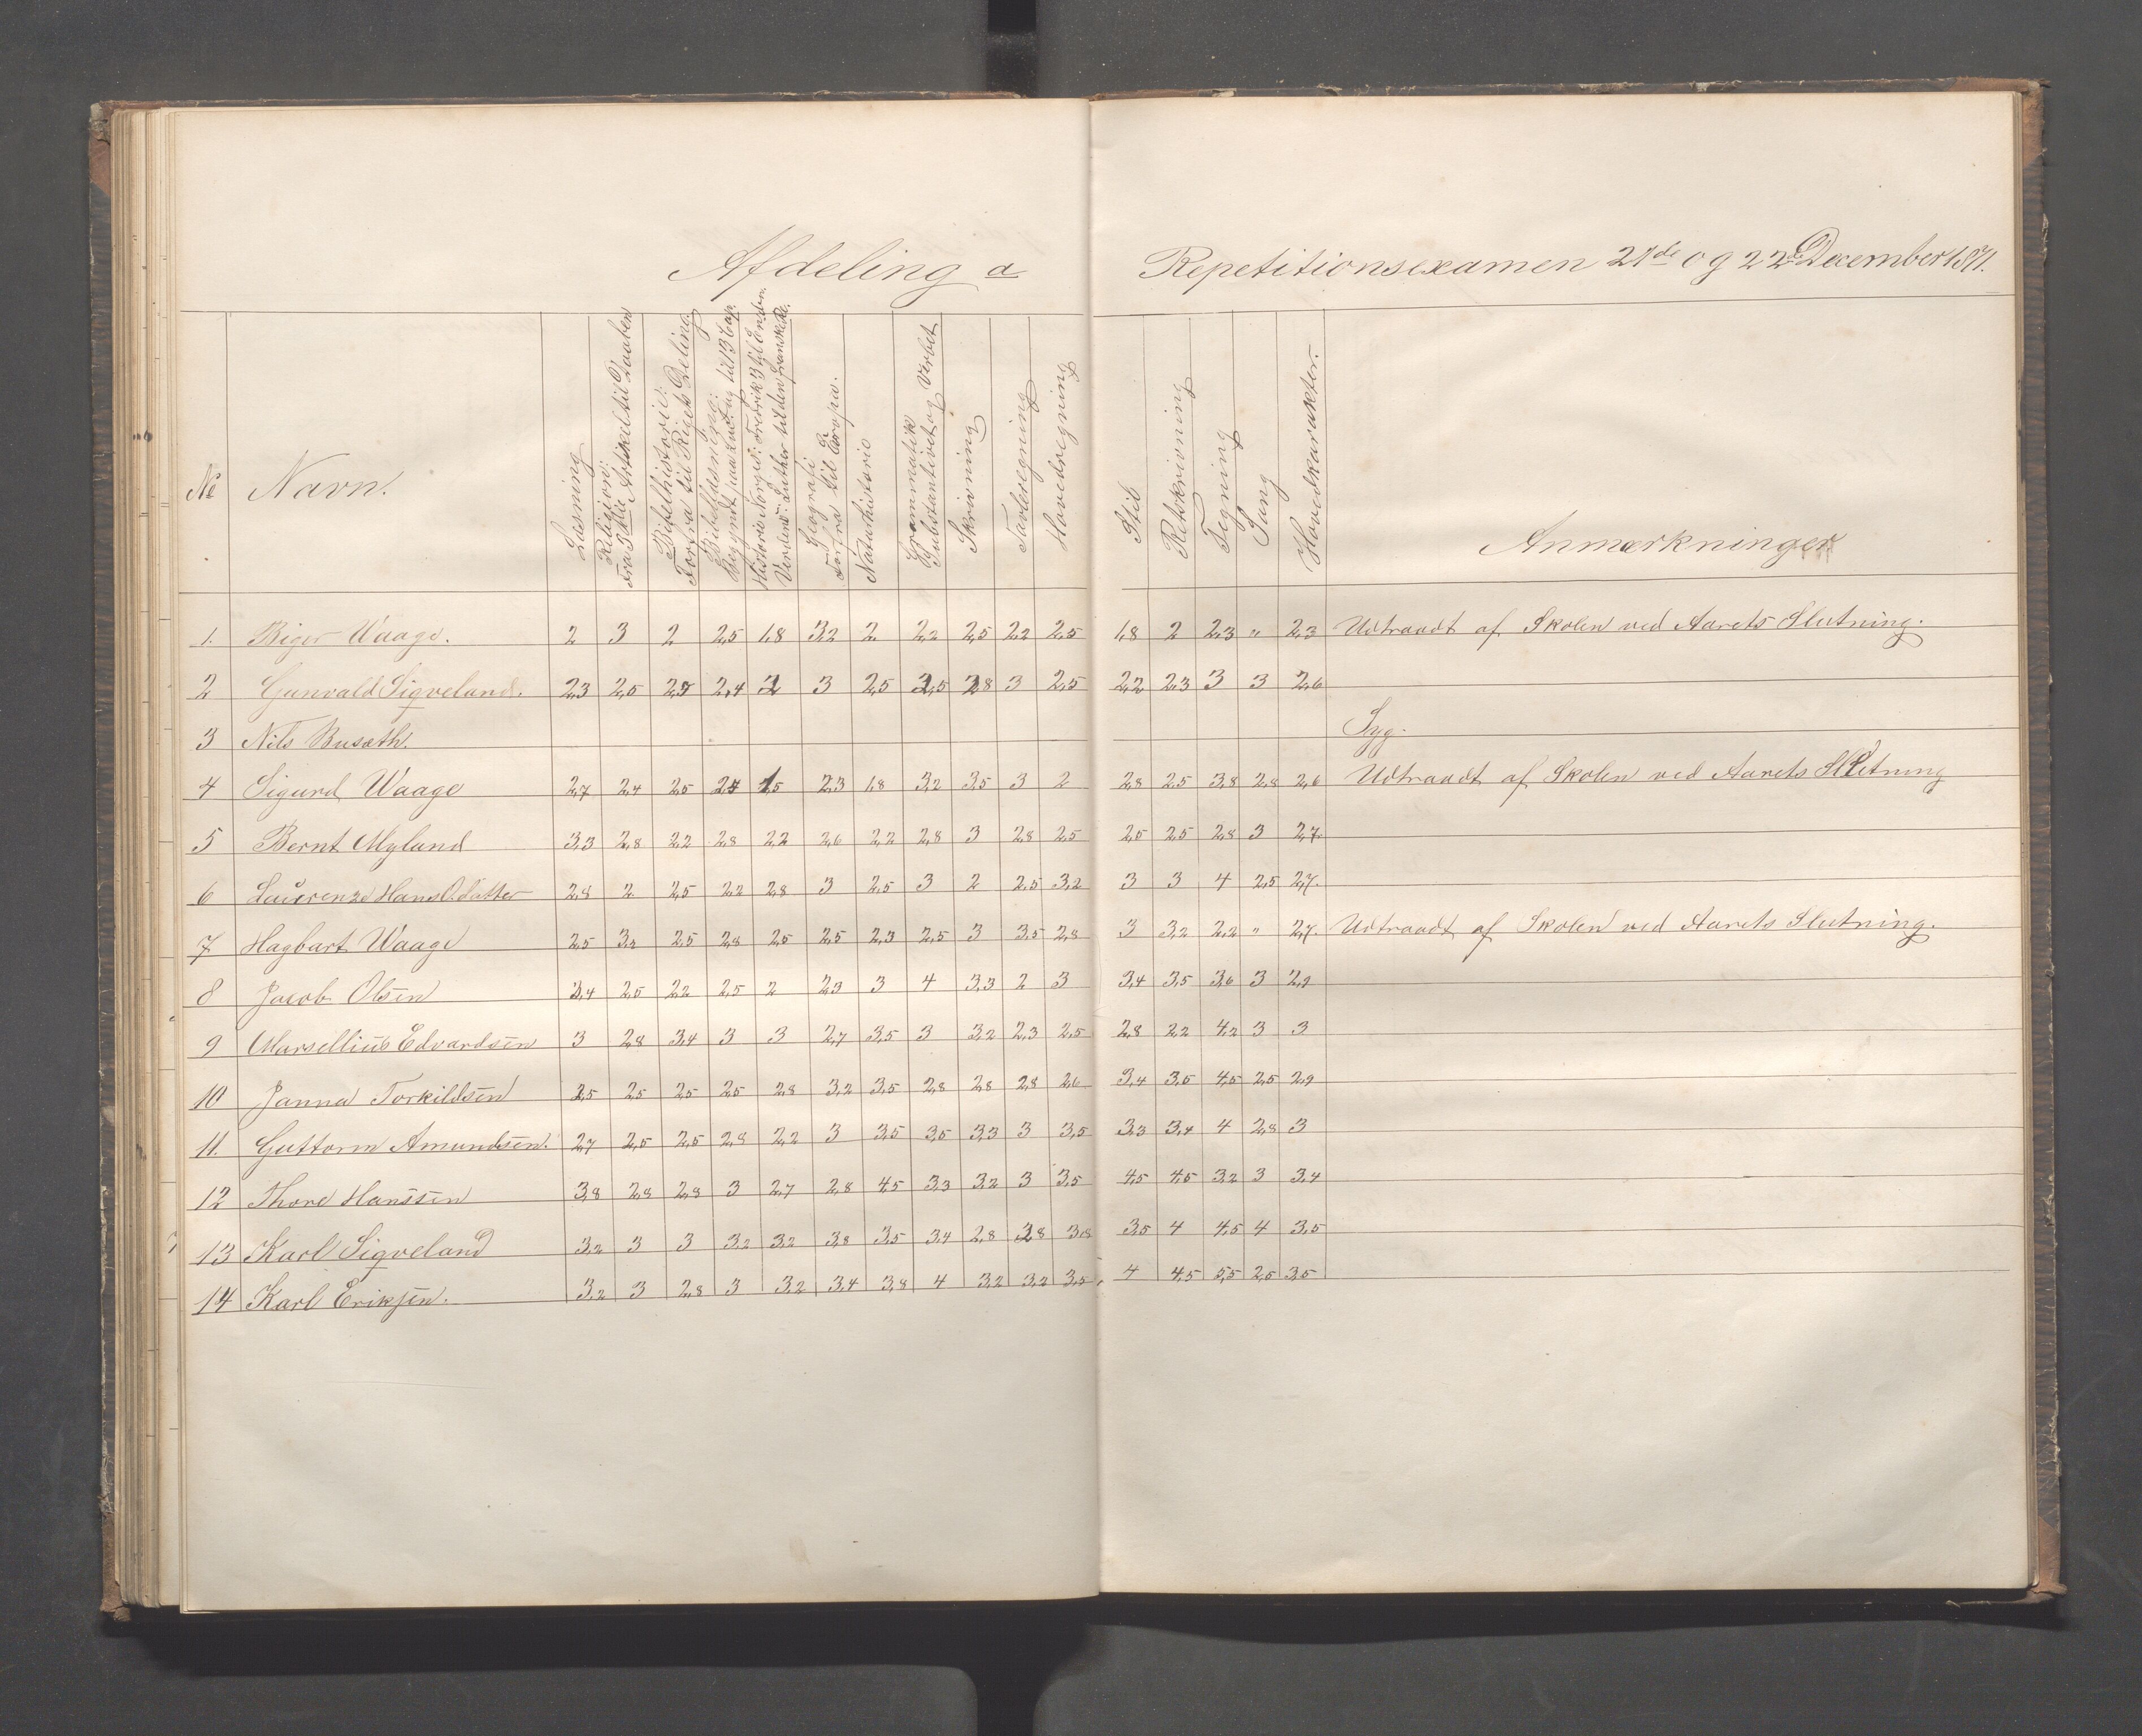 Afdeling a
Repetitionsexamen 21de og 22de December 1871.
No Navn.
Læsning
Religion:
Fra 3die Artikkel til Daaben
Bibelhistorie:
Forfra til Rigets Deling.
Bibellæsning:
Begyndt paa Luc. Ev. til 13 Cap.
Historie Norges: Fredrik 3 til Enden.
Verdens: Luther til den franske Re.
Geografi
Forfra til Europa.
Naturhistorie
Grammatik
Substantivet og Verbet
Skrivning
Tavleregning
Hovedregning
Stil
Retskrivning
Tegning
Sang
Hovedkarakter.
Anmærkninger
1. Birger Waage. 2 3 2 2,5 1,8 3,2 2 2,2 2,5 2,2 2,5 1,8 2 2,3 " 2,3 Udtraadt af Skolen ved Aarets Slutning.
2 Gunvald Sigveland. 2,3 2,5 2,5 2,4 2 3 2,5 2,5 2,8 3 2,5 2,2 2,3 3 3 2,6
3 Nils Busæth. Syg.
4 Sigurd Waage 2,7 2,4 2,5 2,4 1,5 2,3 1,8 3,2 3,5 3 2 2,8 2,5 3,8 2,8 2,6 Udtraadt af Skolen ved Aarets Slutning
5 Bernt Myland 3,3 2,8 2,2 2,8 2,2 2,6 2,2 2,8 3 2,8 2,5 2,5 2,5 2,8 3 2,7
6 Laurenze Hans O. Datter 2,8 2 2,5 2,2 2,8 3 2,5 3 2 2,5 3,2 3 3 4 2,5 2,7
7 Hagbart Waage 2,5 3,2 2,5 2,8 2,5 2,5 2,3 2,5 3 3,5 2,8 3 3,2 2,2 " 2,7 Udtraadt af Skolen ved Aarets Slutning.
8 Jacob Olsen 3,4 2,5 2,2 2,5 2 2,3 3 4 3,3 2 3 3,4 3,5 3,6 3 2,9
9 Marsellius Edvardsen 3 2,8 3,4 3 3 2,7 3,5 3 3,2 2,3 2,5 2,8 2,2 4,2 3 3
10 Janna Torkildsen 2,5 2,5 2,5 2,5 2,8 3,2 3,5 2,8 2,8 2,8 2,6 3,4 3,5 4,5 2,5 2,9
11. Guttorm Amundsen. 2,7 2,5 2,5 2,8 2,2 3 3,5 3,5 3,3 3 3,5 3,3 3,4 4 2,8 3
12 Thore Hanssen 3,8 2,8 2,8 3 2,7 2,8 4,5 3,3 3,2 3 3,5 4,5 4,5 3,2 3 3,4
13 Karl Sigveland 3,2 3 3 3,2 3,2 3,8 3,5 3,4 2,8 2,8 3,8 3,5 4 4,5 4 3,5
14 Karl Eriksen. 3,2 3 2,8 3 3,2 3,4 3,8 4 3,2 3,2 3,5 4 4,5 5,5 2,5 3,5